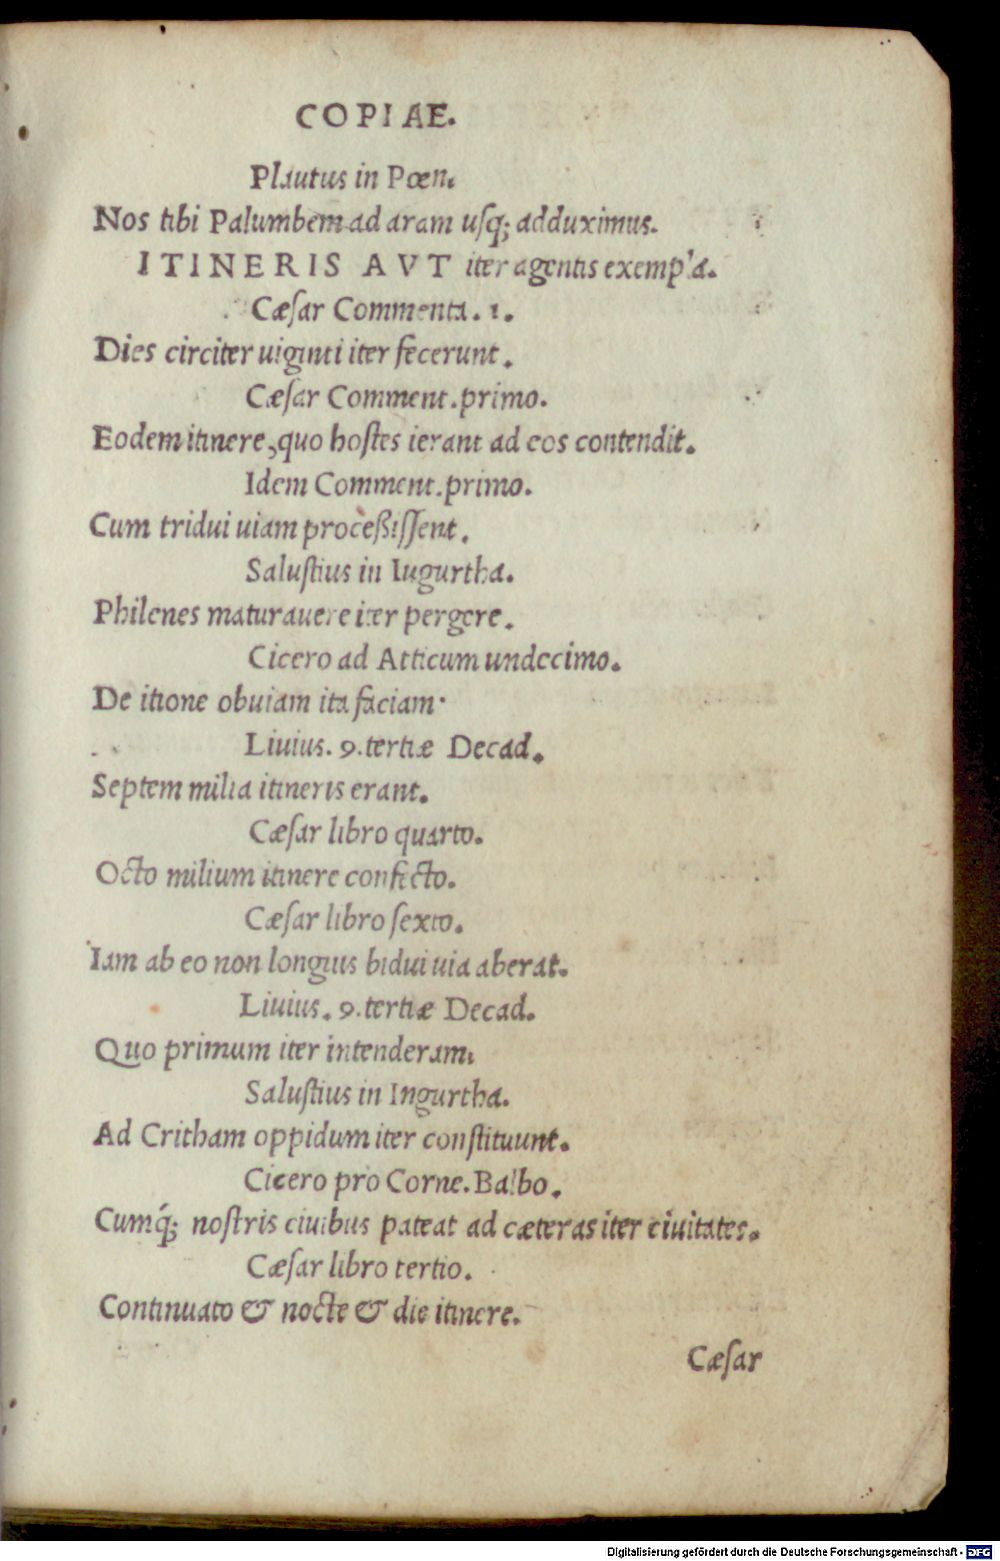 COPIAE.
Plautus in Pœn.
Nos tibi Palumbem ad aram uſq; adduximus.
ITINERIS AVT iter agentis exempla.
Cæſar Commenta. 1.
Dies circiter uiginti iter fecerunt.
Cæſar Comment. primo.
Eodem itinere, quo hoſtes ierant ad eos contendit.
Idem Comment. primo.
Cum tridui uiam proceßiſſent.
Saluſtius in Iugurtha.
Philenes maturauere iter pergere.
Cicero ad Atticum undecimo.
De itione obuiam ita faciam.
Liuius. 9. tertiæ Decad.
Septem milia itineris erant.
Cæſar libro quarto.
Octo milium itinere confecto.
Cæſar libro ſexto.
Iam ab eo non longius bidui uia aberat.
Liuius. 9. tertiæ Decad.
Quo primum iter intenderam.
Saluſtius in Ingurtha.
Ad Critham oppidum iter conſtituunt.
Cicero pro Corne. Balbo.
Cumq́; noſtris ciuibus pateat ad cæteras iter ciuitates.
Cæſar libro tertio.
Continuato & nocte & die itinere.
Cæſar
Digitalisierung gefördert durch die Deutsche Forschungsgemeinschaft - DFG